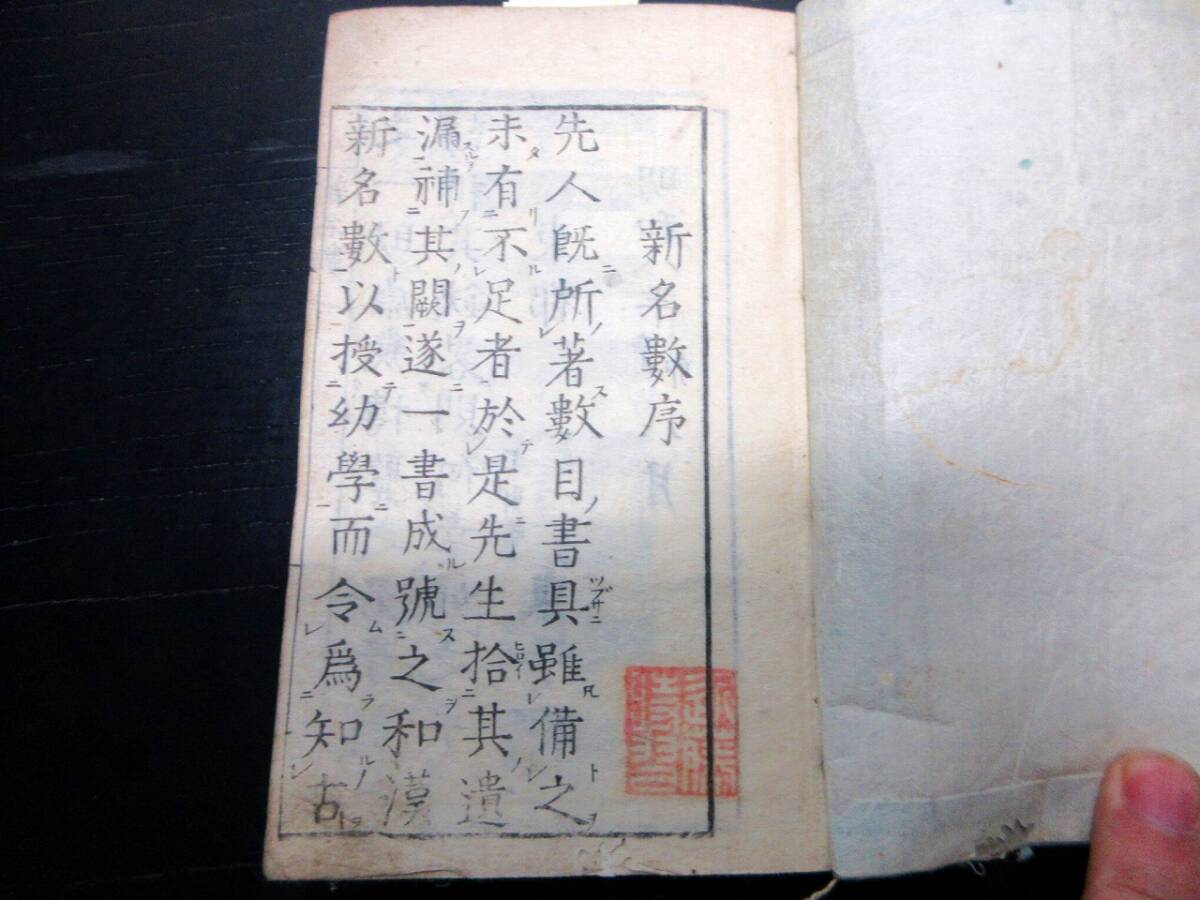 新名數序
先人既所著數目書具雖備之
未有不足者於是先生拾其遺
漏補其闕遂一書成號之和漢
新名數以授幼學而令爲知古